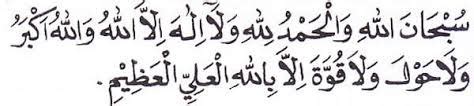 سُبْحَانَ اللهِ وَالْحَمْدُ لِلهِ وَلَآ اِلٰهَ اِلَّا اللهُ وَاللهُ اَكْبَرُ
وَلَا حَوْلَ وَلَا قُوَّةَ اِلَّا بِاللهِ الْعَلِيِّ الْعَظِيْمِ.